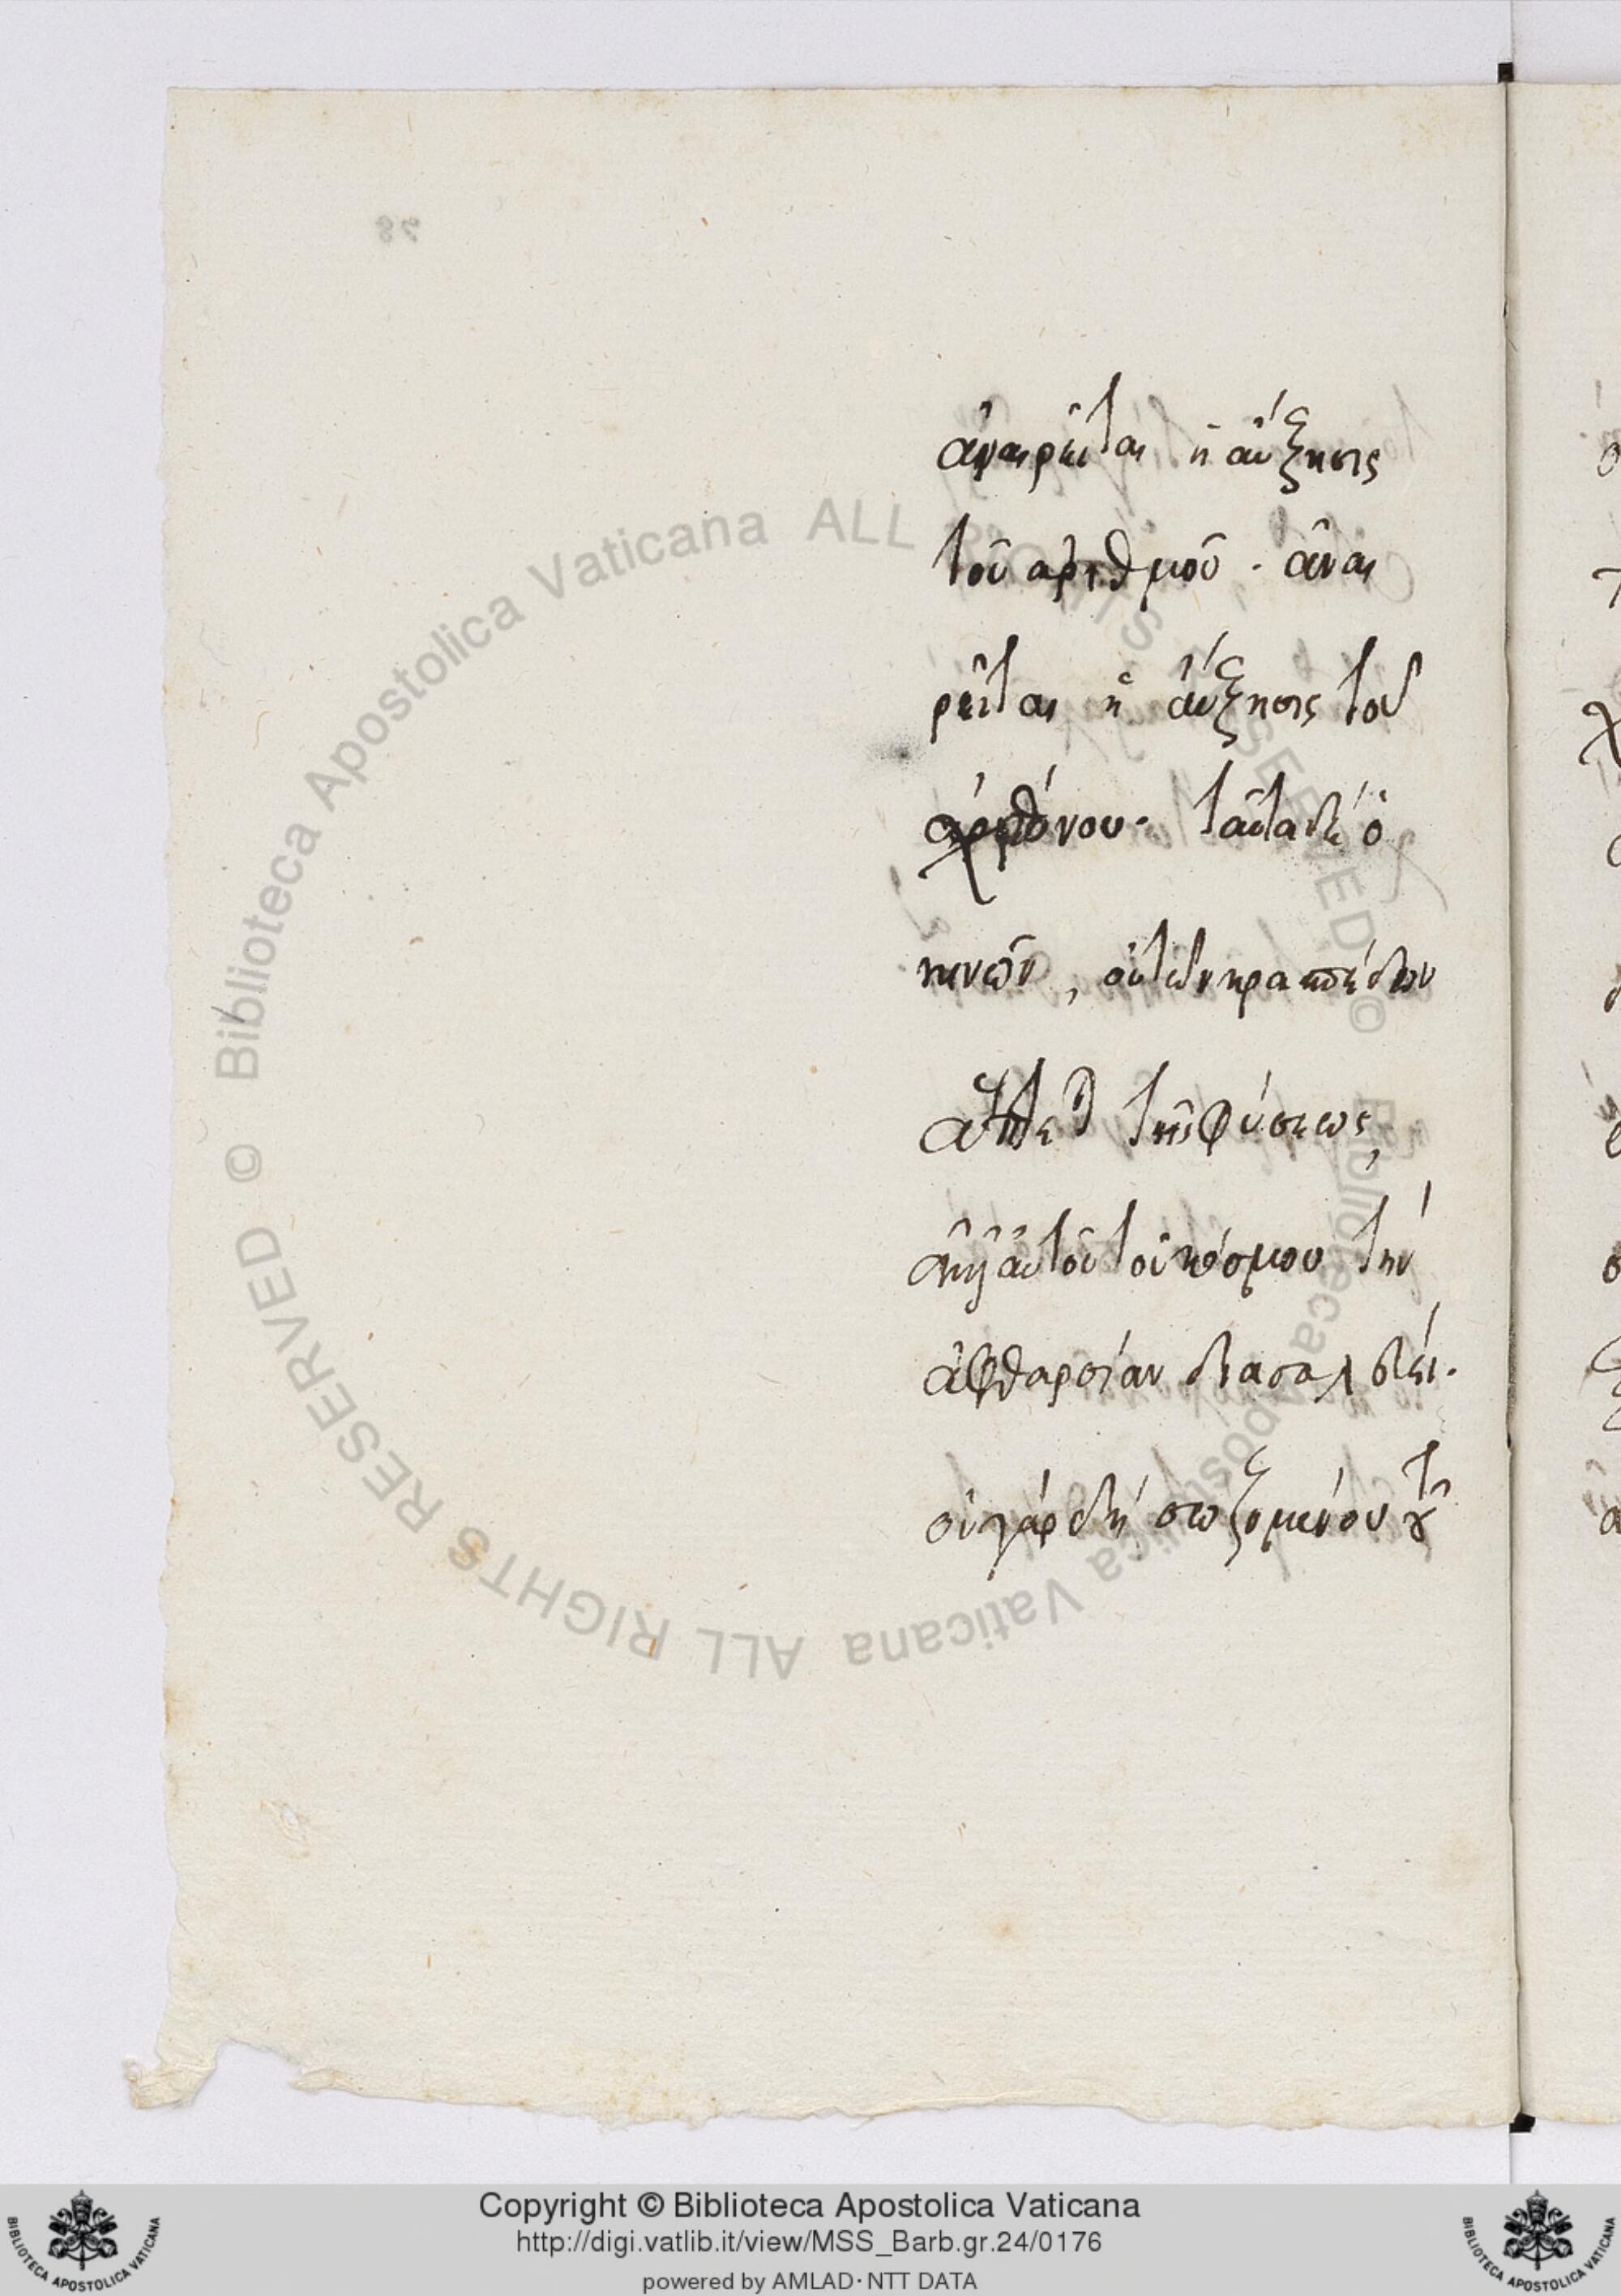 ἀναιρεῖται ἡ αὔξησις
τοῦ ἀριθμοῦ. ἀναι
ρεῖται ἡ αὔξησις τοῦ
χρόνου. ταῦτα δὲ ὁ
κινῶν, οὐ τῶν κρασπέδων
τῆς φύσεως,
αὐτοῦ τοῦ κόσμου τὴν
ἀφθαρσίαν διασαλεύει.
οὐ γὰρ δὴ σωζομένου τοῦ
28
© Biblioteca Apostolica Vaticana ALL RIGHTS RESERVED © Biblioteca Apostolica Vaticana ALL RIGHTS RESERVED
Copyright © Biblioteca Apostolica Vaticana
http://digi.vatlib.it/view/MSS_Barb.gr.24/0176
powered by AMLAD·NTT DATA
BIBLIOTECA APOSTOLICA VATICANA
BIBLIOTECA APOSTOLICA VATICANA